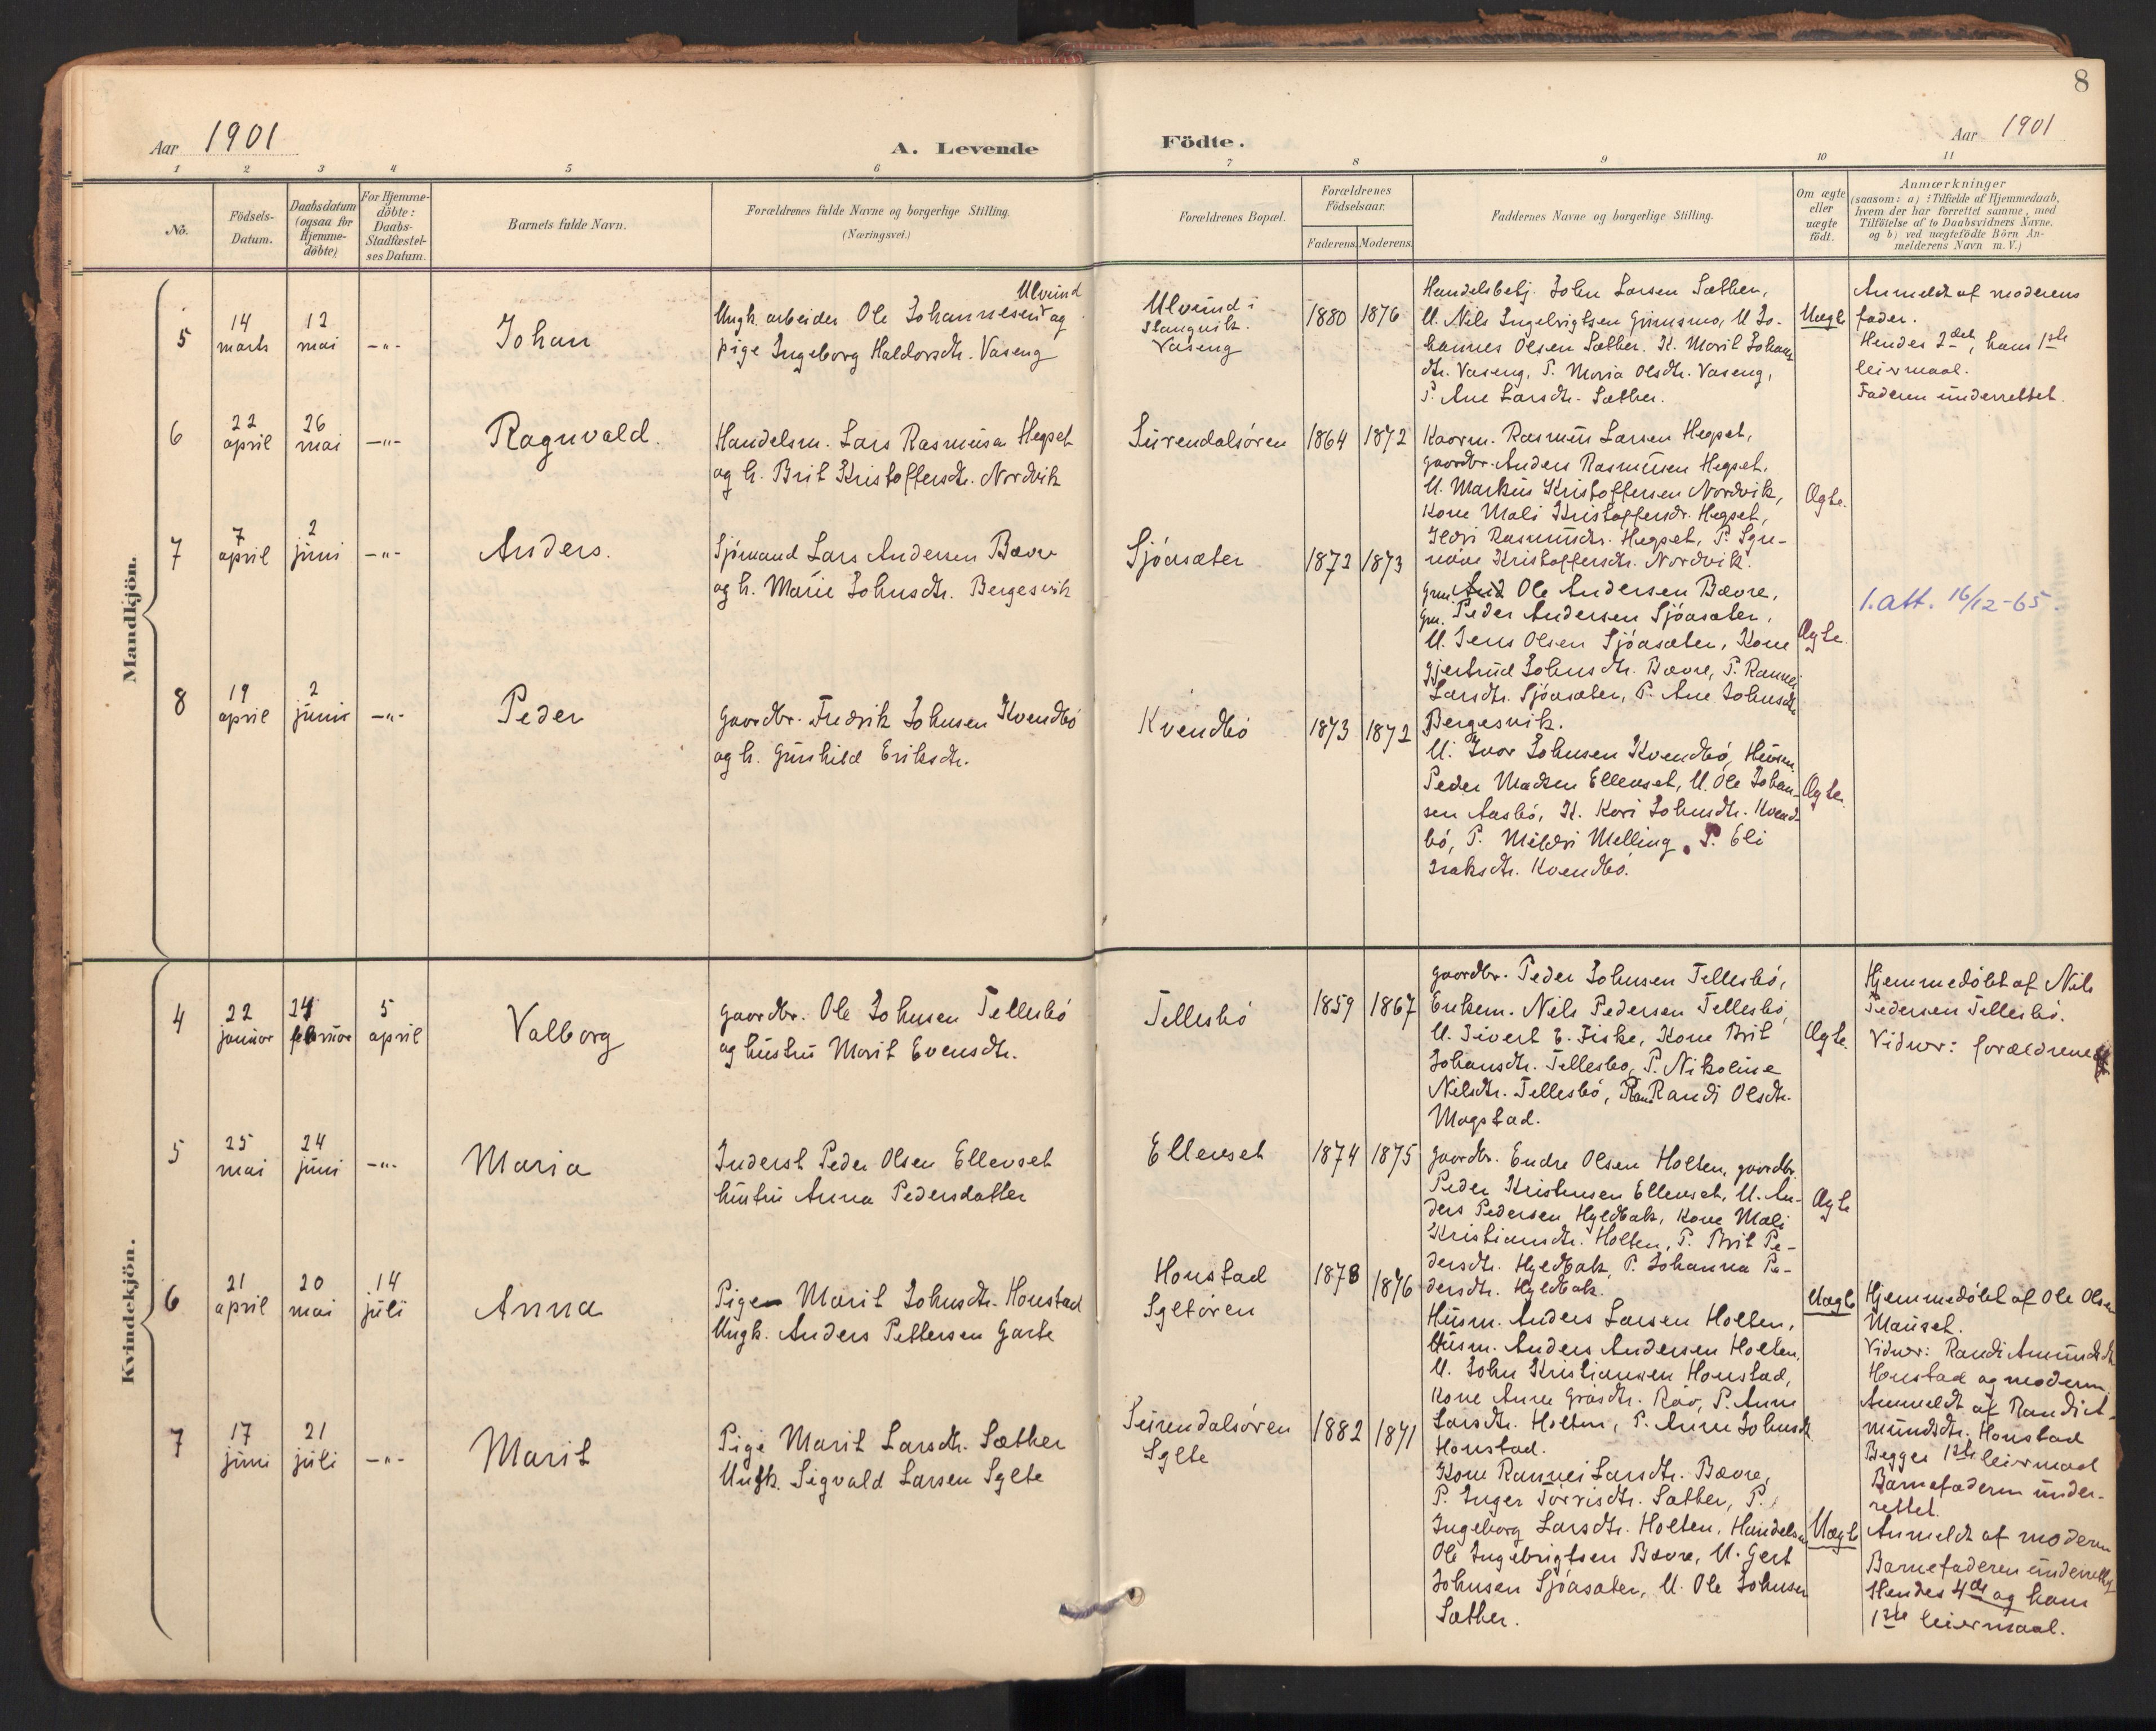 8
Aar 1901
A. Levende Födte.
Aar 1901
1 2 3 4 5 6 7 8 9 10 11
No.
Födsels-Datum.
Daabsdatum (ogsaa for Hjemme-döbte)
For Hjemme-döbte: Daabs-Stadfæstel-ses Datum.
Barnets fulde Navn.
Forældrenes fulde Navne og borgerlige Stilling.
(Næringsvei.)
Forældrenes Bopæl.
Forældrenes Födselsaar.
Faderens. Moderens.
Faddernes Navne og borgerlige Stilling.
Om ægte eller uægte födt.
Anmærkninger
(saasom: a) i Tilfælde af Hjemmedaab,
hvem der har forrettet samme, med
Tilföielse af to Daabsvidners Navne,
og b) ved uægtefödte Börn An-
melderens Navn m. V.)
Mandkjön.
5
14 marts
12 mai
-"-
Johan
Ulvund
Ungk. arbeider Ole Johannesen og
pige Ingeborg Haldorsdtr. Vaseng
Ulvund i
Stangvik.
Vaseng
1880 1876
Handelsbetj. John Larsen Sæther,
U. Nils Ingebrigtsen Grimsmo, U. Jo-
hannes Olsen Sæther. K. Marit Johans
dtr. Vaseng, P. Maria Olsdtr. Vaseng,
P. Ane Larsdtr. Sæther.
Uægte
Anmeldt af moderens
fader.
Hendes 2det, hans 1ste
leiermaal.
Faderen underrettet.
6
22 april
26 mai
-"-
Ragnvald.
Handelsm. Lars Rasmusen Hegset
og h. Brit Kristoffersdtr. Nordvik
Surendalsören
1864 1872
Kaarm. Rasmus Larsen Hegset,
gaardbr. Anders Rasmusen Hegset.
U. Markus Kristoffersen Nordvik,
Kone Mali Kristoffersdr. Hegset,
Ildri Rasmusdtr. Hegset, P.
Kristoffersdtr. Nordvik.
Ægte.
7
7 april
2 juni
-"-
Anders.
Sjömand Lars Andersen Bævre
og h. Marie Johnsdtr. Bergesvik
Sjöasæter
1872 1873
Ole Andersen Bævre,
Gm. Peder Andersen Sjöasæter,
U. Jens Olsen Sjöasæter, Kone
Gjertrud Johnsdtr. Bævre, P. Rannei
Larsdtr. Sjöasæter, P. Ane Johnsdtr
Bergesvik.
Ægte.
1. att. 16/12-65.
8
19 april
2 juni
-"-
Peder
Gaardbr. Fredrik Johnsen Kvendbö
og h. Gunhild Eriksdtr.
Kvendbö
1873 1872
U. Ivar Johnsen Kvendbö, Husm.
Peder Madsen Ellevset, U. Ole Johan-
sen Aasbö, K. Kari Johnsdtr. Kvend-
bö, P. Mildri Melling, P. Eli
Isaksdtr. Kvendbö.
Ægte.
Kvindekjön.
4
22 januar
24 februar
5 april
Valborg
Gaardbr. Ole Johnsen Tellesbö
og hustru Marit Evensdtr.
Tellesbö
1859 1867
Gaardbr. Peder Johnsen Tellesbö,
Enkem. Nils Pedersen Tellesbö,
U. Sivert E. Fiske, Kone Brit
Johansdtr. Tellesbö, P. Nikoline
Nilsdtr. Tellesbö, Randi Olsdtr.
Mogstad.
Ægte.
Hjemmedöbt af Nils
Pedersen Tellesbö.
Vidner: forældrene
5
25 mai
24 juni
-"-
Maria
Inderst Peder Olsen Ellevset
hustru Anna Pedersdatter
Ellevset
1874 1875
Gaardbr. Endre Olsen Holten, gaardbr.
Peder Kristensen Ellevset, U. An-
ders Pedersen Hyldbak, Kone Mali
Kristiansdtr. Holten, P. Brit Pe-
dersdtr. Hyldbak, P. Johanna Pe-
dersdtr. Hyldbak.
Ægte
6
21 april
20 mai
14 juli
Anna
Pige Marit Johnsdtr. Honstad
Ungk. Anders Pettersen Garte
Honstad
Sylteören
1878 1876
Husm. Anders Larsen Holten,
Husm. Anders Andersen Holten,
U. John Kristiansen Honstad,
Kone Anne P. Anne
Larsdtr. Holten, P. Anne Johnsdtr.
Honstad.
Uægte
Hjemmedöbt af Ole Olsen
Mauset.
Vidner: Randi Amundsdtr
Honstad og moderen.
Anmeldt af Randi A-
mundsdtr. Honstad
Begges 1ste leiermaal
Barnefaderen under-
rettet.
7
17 juni
21 juli
-"-
Marit
Pige Marit Larsdtr. Sæther
Ungk. Sigvald Larsen Sylte
Surendalsören
Sylte
1882 1871
Kone Rannei Larsdtr. Bævre,
P. Inger Torrisdtr. Sæther, P.
Ingeborg Larsdtr. Holten, Handelsm
Ole Ingebrigtsen Bævre, U. Gert
Johnsen Sjöasæter, U. Ole Johnsen
Sæther.
Uægte
Anmeldt af moderen
Barnefaderen underrettet
Hendes 4de og hans
1ste leiermaal.